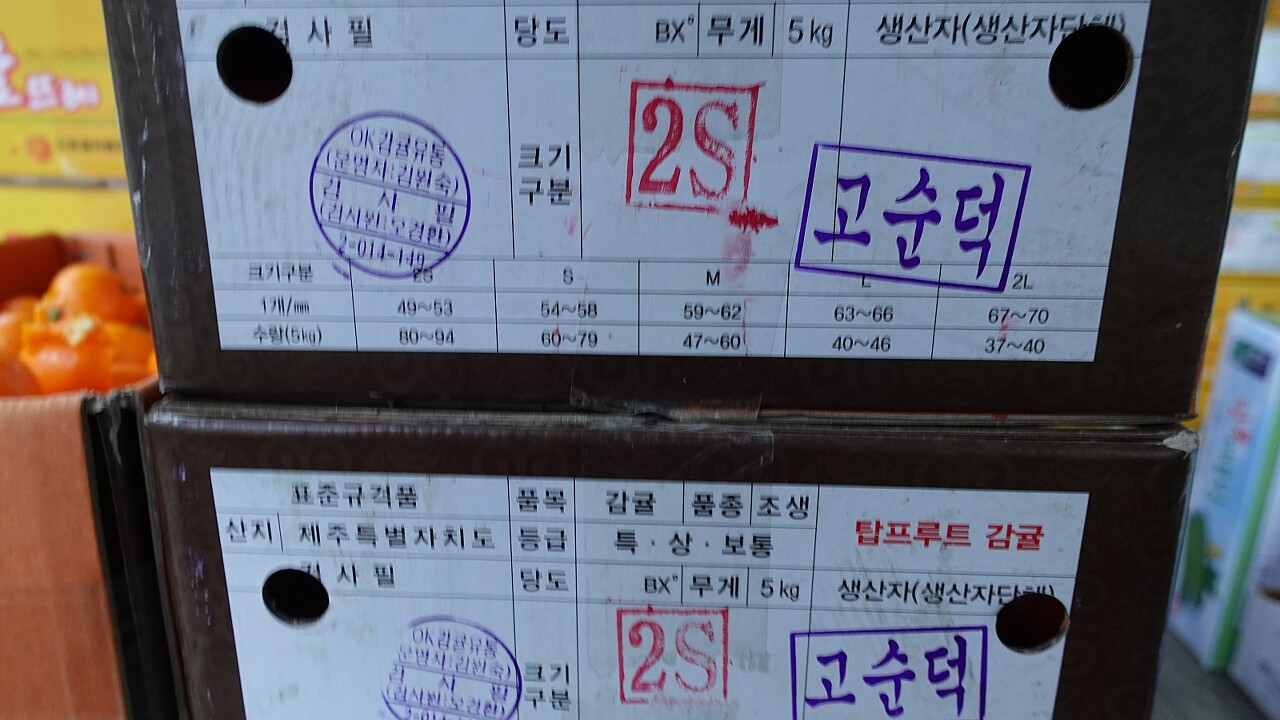 검사필 당도 BX° 무게 5kg 생산자(생산자단체)
OK감귤유통
(운영자:김원숙)
검사필
(검사원:오경환)
2-014-149
크기
구분
2S
고순덕
크기구분 2S S M L 2L
1개/mm 49~53 54~58 59~62 63~66 67~70
수량(5kg) 80~94 60~79 47~60 40~46 37~40
표준규격품 품목 감귤 품종 조생
산지 제주특별자치도 등급 특·상·보통
탑프루트 감귤
검사필 당도 BX° 무게 5kg 생산자(생산자단체)
OK감귤유통
(운영자:김원숙)
검사필
(검사원:오경환)
크기
구분
2S
고순덕